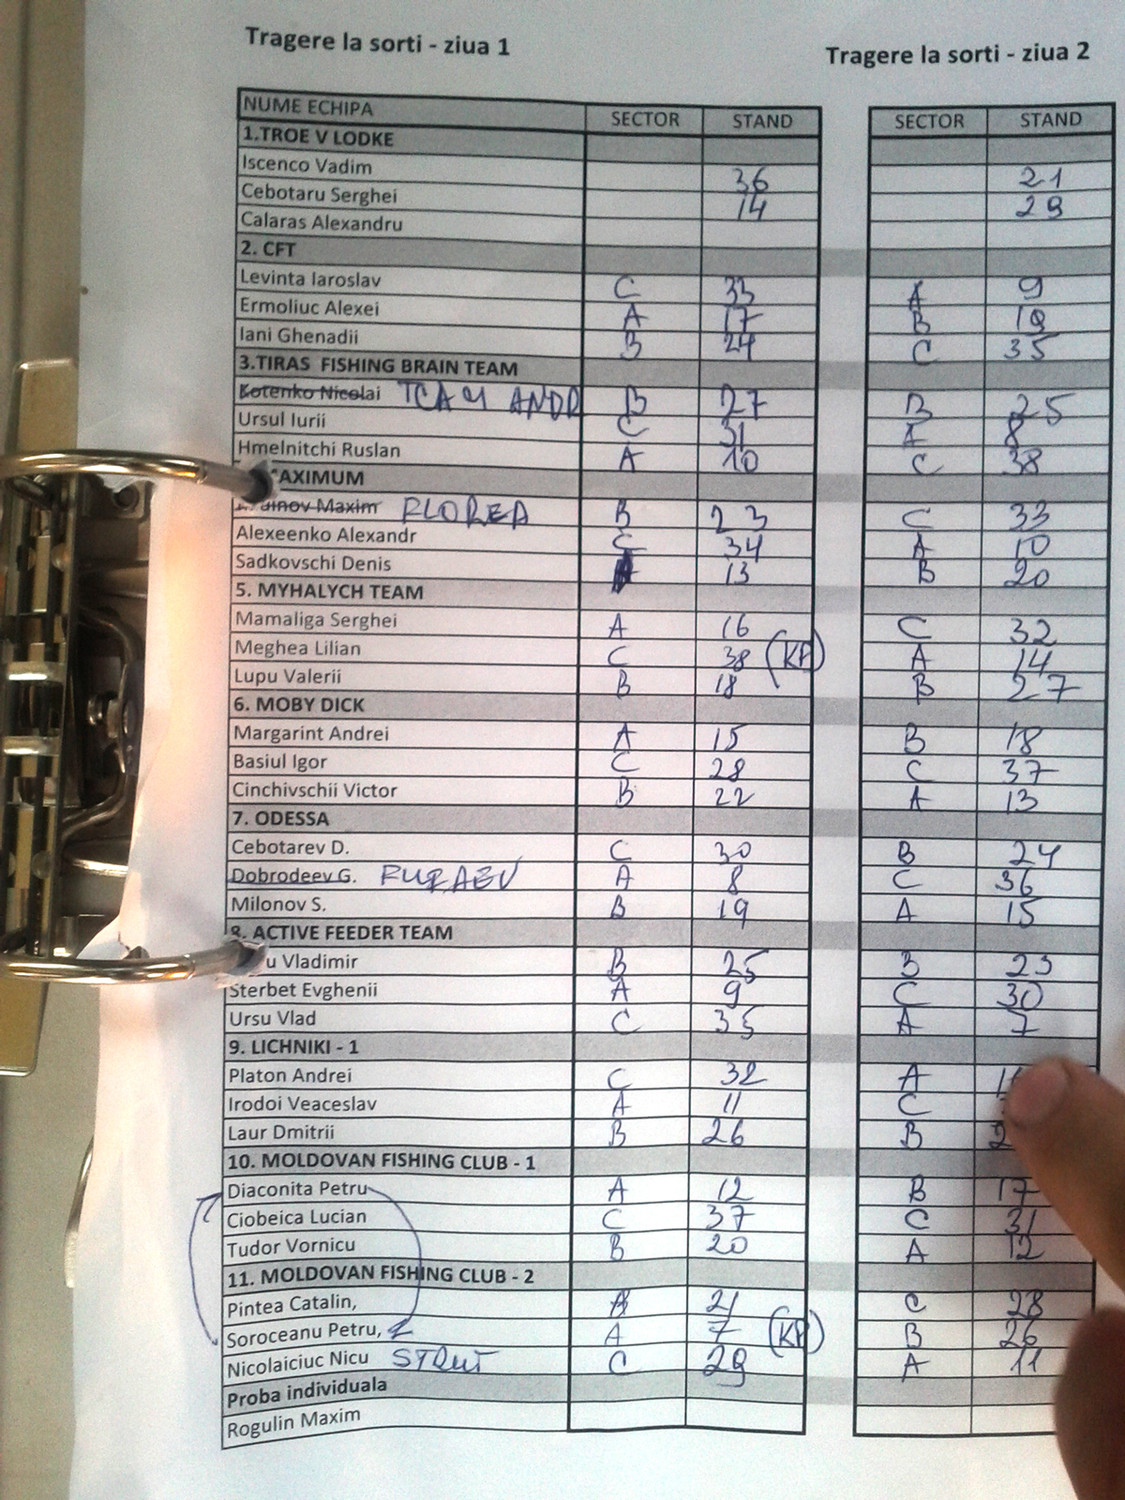 Tragere la sorti - ziua 1 Tragere la sorti - ziua 2
NUME ECHIPA SECTOR STAND SECTOR STAND
1.TROE V LODKE
Iscenco Vadim 36 21
Cebotaru Serghei 14 29
Calaras Alexandru
2. CFT
Levinta Iaroslav C 33 A 9
Ermoliuc Alexei A 17 B 19
Iani Ghenadii B 24 C 35
3.TIRAS FISHING BRAIN TEAM
Kotenko Nicolai TCAY ANDR B 27 B 25
Ursul Iurii C 31 A 8
Hmelnitchi Ruslan A 10 C 38
AXIMUM
Maxim FLOREA B 23 C 33
Alexeenko Alexandr C 34 A 10
Sadkovschi Denis A 13 B 20
5. MYHALYCH TEAM
Mamaliga Serghei A 16 C 32
Meghea Lilian C 38 (KP) A 14
Lupu Valerii B 18 B 27
6. MOBY DICK
Margarint Andrei A 15 B 18
Basiul Igor C 28 C 37
Cinchivschii Victor B 22 A 13
7. ODESSA
Cebotarev D. C 30 B 24
Dobrodeev G. FURAEV A 8 C 36
Milonov S. B 19 A 15
8. ACTIVE FEEDER TEAM
u Vladimir B 25 B 23
Sterbet Evghenii A 9 C 30
Ursu Vlad C 35 A 7
9. LICHNIKI - 1
Platon Andrei C 32 A
Irodoi Veaceslav A 11 C
Laur Dmitrii B 26 B
10. MOLDOVAN FISHING CLUB - 1
Diaconita Petru A 12 B 17
Ciobeica Lucian C 37 C 31
Tudor Vornicu B 20 A 12
11. MOLDOVAN FISHING CLUB - 2
Pintea Catalin, B 21 C 28
Soroceanu Petru, A 7 (KP) B 26
Nicolaiciuc Nicu STRUT C 29 A 11
Proba individuala
Rogulin Maxim